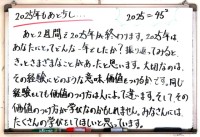 2025年もあと少し…　2025=45²
あと2週間で2025年が終わります。2025年は、
あなたにとってどんな一年でしたか？振り返ってみると、
きっとさまざまなことがあったと思います。大切なのは、
その経験にどのような意味、価値をつけるかです。同じ
経験をしても価値のつけ方は人によって違います。そしてその
価値のつけ方が学びなのかもしれません。みなさんには、
たくさんの学びをしてほしいと思っています。